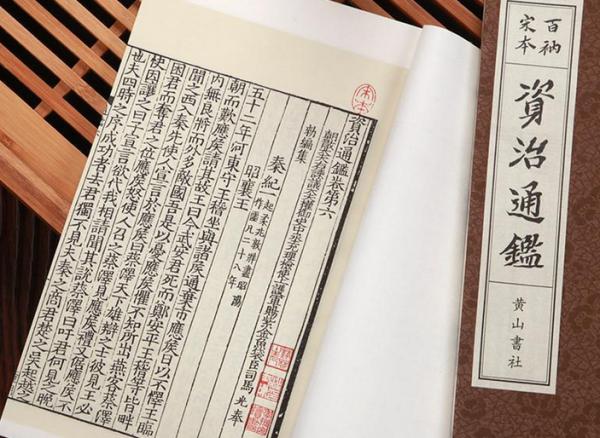 宋本
資治通鑑卷第六
朝散大夫諫議大夫權御史中丞充理檢使上護軍賜紫金魚袋臣司馬光奉
勑編集
秦紀一 起柔兆敦牂盡昭陽
作噩凡二十八年
昭襄王
五十二年河東守王稽坐與諸侯通棄市應侯日以不懌王臨
朝而歎應侯請其故王曰今武安君死而鄭安平王稽等皆畔
內無良將而外多敵國吾是以憂應侯懼不知所出燕客蔡澤
聞之西入秦先使人宣言於應侯曰蔡澤天下雄辯之士彼見王必
困君而奪君之位應侯怒使人召之蔡澤見應侯禮又倨應侯不
快因讓之曰子宣言欲代我相請聞其說蔡澤曰吁君何見之晚
也夫四時之序成功者去君獨不見夫秦之商君楚之吳起越之
百衲
宋本
資治通鑑
黄山書社